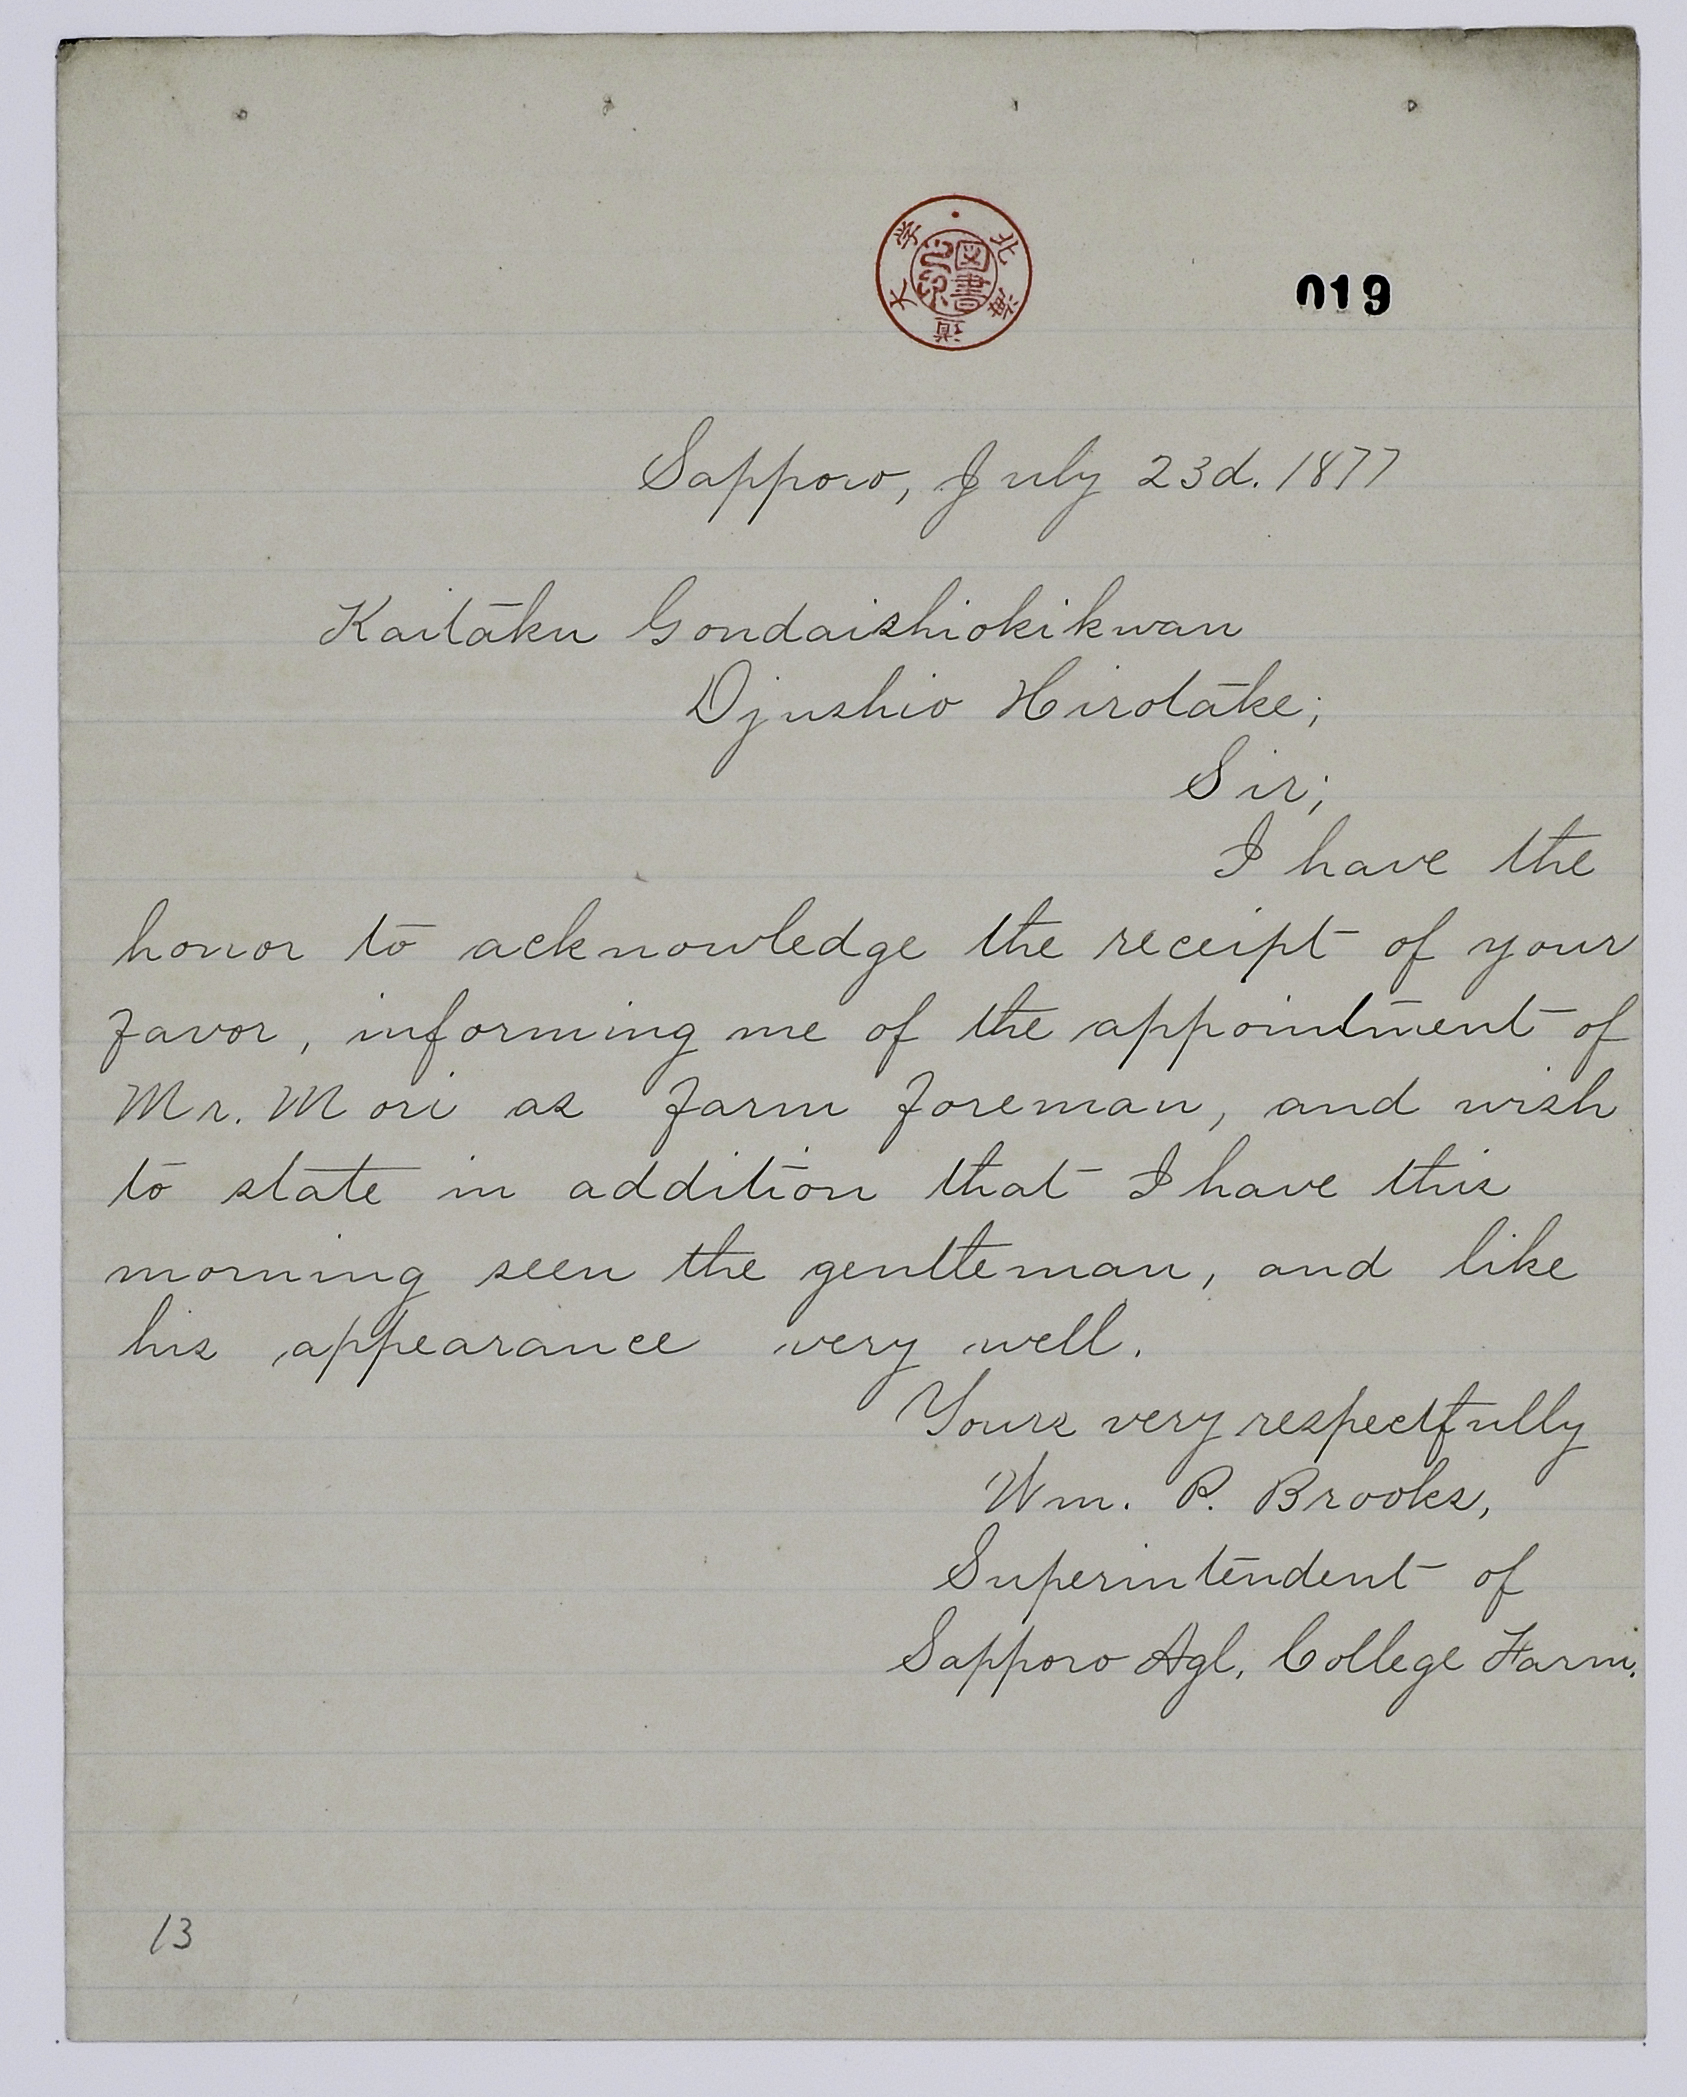 北海道大学
図書之印
019
Sapporo, July 23d. 1877
Kaitaku Gondaishiokikwan
Djushio Hirotake;
Sir;
I have the
honor to acknowledge the receipt of your
favor, informing me of the appointment of
Mr. Mori as farm foreman, and wish
to state in addition that I have this
morning seen the gentleman, and like
his appearance very well.
Yours very respectfully
Wm. P. Brooks,
Superintendent of
Sapporo Agl. College Farm.
13